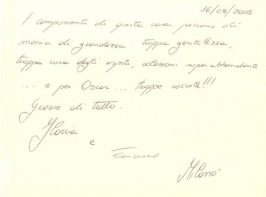 16/08/2005
I componenti di questa casa peccano di
mania di grandezza: troppa gentilezza,
troppa cura degli ospiti, colazioni sovrabbondanti
... e per Oscar ... troppe coccole!!!
Grazie di tutto.
Ilaria
e
Francesco
Milano